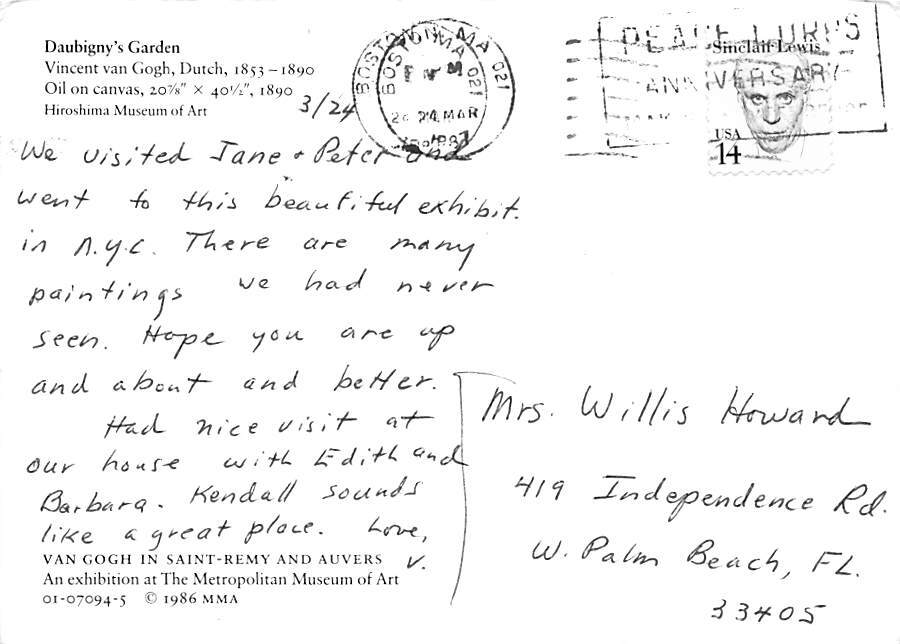 Daubigny's Garden
Vincent van Gogh, Dutch, 1853–1890
Oil on canvas, 20⅞" × 40½", 1890
Hiroshima Museum of Art
3/24
We visited Jane + Peter and
went to this beautiful exhibit.
in N.Y.C. There are many
paintings we had never
seen. Hope you are up
and about and better.
Had nice visit at
our house with Edith and
Barbara. Kendall sounds
like a great place. Love,
V.
VAN GOGH IN SAINT-REMY AND AUVERS
An exhibition at The Metropolitan Museum of Art
01-07094-5 © 1986 MMA
BOSTON, MA 021
24 MAR
1987
PEACE CORPS
ANNIVERSARY
Sinclair Lewis
USA
14
Mrs. Willis Howard
419 Independence Rd.
W. Palm Beach, FL.
33405